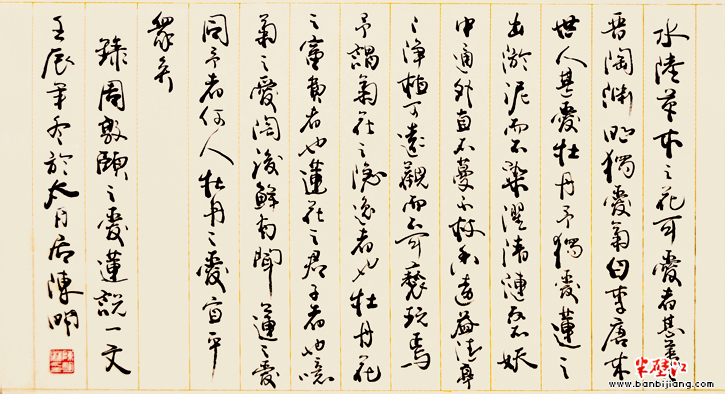 水陸草木之花可愛者甚蕃
晉陶淵明獨愛菊自李唐来
世人甚愛牡丹予獨愛蓮之
出淤泥而不染濯清漣而不妖
中通外直不蔓不枝香遠益清亭
々淨植可遠觀而不可褻玩焉
予謂菊花之隱逸者也牡丹花
之富貴者也蓮花之君子者也噫
菊之愛陶後鮮有聞蓮之愛
同予者何人牡丹之愛宜乎
衆矣
錄周敦頤之愛蓮說一文
壬辰年冬於月居陳明
半壁江
www.banbijiang.com